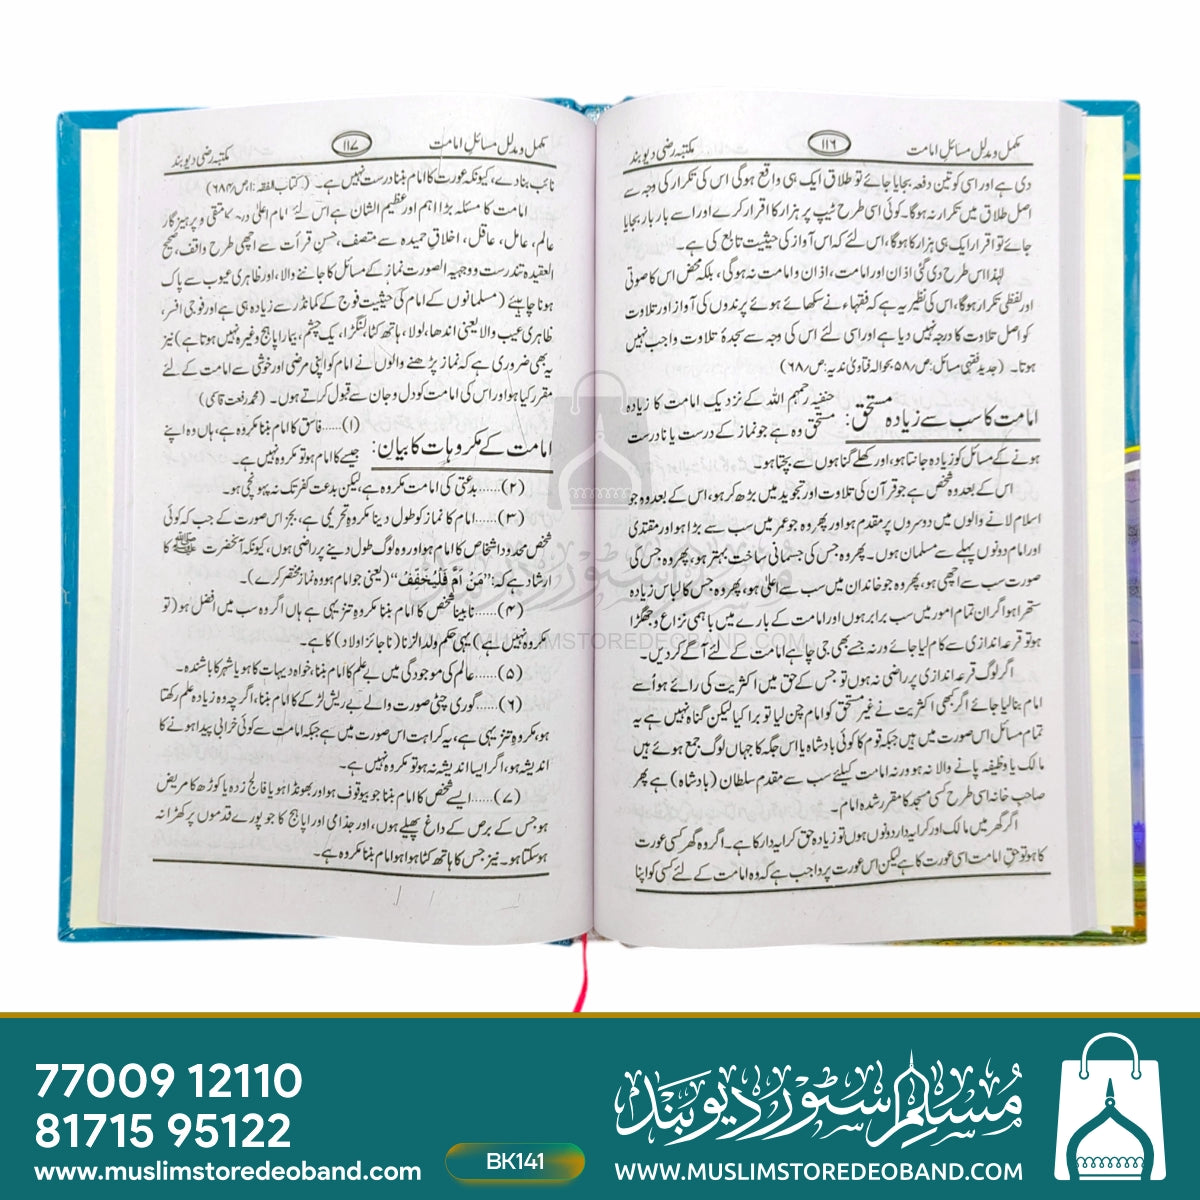 مکمل و مدلل مسائل امامت ۱۱۶ مکتبہ رضی دیوبند
دی ہے اور اسی کو تین دفعہ بجایا جائے تو طلاق ایک ہی واقع ہوگی اس کی تکرار کی وجہ سے
اصل طلاق میں تکرار نہ ہوگا۔ کوئی اسی طرح ٹیپ پر ہزار کا اقرار کرے اور اسے بار بار بجایا
جائے تو اقرار ایک ہی ہزار کا ہوگا، اس لئے کہ اس آواز کی حیثیت تابع کی ہے۔
لہٰذا اس طرح دی گئی اذان اور امامت، اذان و امامت نہ ہوگی، بلکہ محض اس کا صوتی
اور لفظی تکرار ہوگا، اس کی نظیر یہ ہے کہ فقہاء نے سکھائے ہوئے پرندوں کی آواز اور تلاوت
کو اصل تلاوت کا درجہ نہیں دیا ہے اور اسی لئے اس کی وجہ سے سجدۂ تلاوت واجب نہیں
ہوتا۔ (جدید فقہی مسائل: ص ۵۸ بحوالہ فتاویٰ ندیہ: ص/۶۸)
امامت کا سب سے زیادہ مستحق: حنفیہ رحمہم اللہ کے نزدیک امامت کا زیادہ
مستحق وہ ہے جو نماز کے درست یا نادرست
ہونے کے مسائل کو زیادہ جانتا ہو، اور کھلے گناہوں سے بچتا ہو۔
اس کے بعد وہ شخص ہے جو قرآن کی تلاوت اور تجوید میں بڑھ کر ہو، اس کے بعد وہ جو
اسلام لانے والوں میں دوسروں پر مقدم ہو اور پھر وہ جو عمر میں سب سے بڑا ہو اور مقتدی
اور امام دونوں پہلے سے مسلمان ہوں۔ پھر وہ جس کی جسمانی ساخت بہتر ہو، پھر وہ جس کی
صورت سب سے اچھی ہو، پھر وہ جو خاندان میں سب سے اعلیٰ ہو، پھر وہ جس کا لباس زیادہ
ستھرا ہو اگر ان تمام امور میں سب برابر ہوں اور امامت کے بارے میں باہمی نزاع و جھگڑا
ہو تو قرعہ اندازی سے کام لیا جائے ورنہ جسے بھی جی چاہے امامت کے لئے آگے کر دیں۔
اگر لوگ قرعہ اندازی پر راضی نہ ہوں تو جس کے حق میں اکثریت کی رائے ہو اُسے
امام بنالیا جائے اگر کبھی اکثریت نے غیر مستحق کو امام چن لیا تو برا کیا لیکن گناہ نہیں ہے یہ
تمام مسائل اس صورت میں ہیں جبکہ قوم کا کوئی بادشاہ یا اس جگہ کا جہاں لوگ جمع ہوئے ہیں
مالک یا وظیفہ پانے والا نہ ہو ورنہ امامت کیلئے سب سے مقدم سلطان (بادشاہ) ہے پھر
صاحب خانہ اسی طرح کسی مسجد کا مقرر شدہ امام۔
اگر گھر میں مالک اور کرایہ دار دونوں ہوں تو زیادہ حق کرایہ دار کا ہے۔ اگر وہ گھر کسی عورت
کا ہو تو حق امامت اسی عورت کا ہے لیکن اس عورت پر واجب ہے کہ وہ امامت کے لئے کسی کو اپنا
مکمل و مدلل مسائل امامت ۱۱۷ مکتبہ رضی دیوبند
نائب بنادے، کیونکہ عورت کا امام بننا درست نہیں ہے۔ (کتاب الفقہ: ۱ص/۶۸۴)
امامت کا مسئلہ بڑا اہم اور عظیم الشان ہے اس لئے امام اعلیٰ درجہ کا متقی و پرہیزگار
عالم، عامل، عاقل، اخلاقِ حمیدہ سے متصف، حسنِ قرأت سے اچھی طرح واقف، صحیح
العقیدہ تندرست و وجیہہ الصورت نماز کے مسائل کا جاننے والا، اور ظاہری عیوب سے پاک
ہونا چاہئے (مسلمانوں کے امام کی حیثیت فوج کے کمانڈر سے زیادہ ہی ہے اور فوجی افسر،
ظاہری عیب والا یعنی اندھا، لولا، ہاتھ کٹا، لنگڑا، یک چشم، بیمار اپاہج وغیرہ نہیں ہوتا ہے) نیز
یہ بھی ضروری ہے کہ نماز پڑھنے والوں نے امام کو اپنی مرضی اور خوشی سے امامت کے لئے
مقرر کیا ہو اور اس کی امامت کو دل و جان سے قبول کرتے ہوں۔ (محمد رفعت قاسمی)
امامت کے مکروہات کا بیان: (۱)......فاسق کا امام بننا مکروہ ہے، ہاں وہ اپنے
جیسے کا امام ہو تو مکروہ نہیں ہے۔
(۲)......بدعتی کی امامت مکروہ ہے، لیکن بدعت کفر تک نہ پہونچی ہو۔
(۳)......امام کا نماز کو طول دینا مکروہ تحریمی ہے، بجز اس صورت کے جب کہ کوئی
شخص محدود اشخاص کا امام ہو اور وہ لوگ طول دینے پر راضی ہوں، کیونکہ آنحضرت ﷺ کا
ارشاد ہے کہ: ”مَنْ اَمَّ فَلْیُخَفِّفْ“ (یعنی جو امام ہو وہ نماز مختصر کرے)۔
(۴)......نابینا شخص کا امام بننا مکروہ تنزیہی ہے ہاں اگر وہ سب میں افضل ہو (تو
مکروہ نہیں ہے) یہی حکم ولد الزنا (ناجائز اولاد) کا ہے۔
(۵)......عالم کی موجودگی میں بے علم کا امام بننا، خواہ دیہات کا ہو یا شہر کا باشندہ۔
(۶)......گوری چٹی صورت والے بے ریش لڑکے کا امام بننا، اگر چہ وہ زیادہ علم رکھتا
ہو، مکروہ تنزیہی ہے، یہ کراہت اس صورت میں ہے جبکہ امامت سے کوئی خرابی پیدا ہونے کا
اندیشہ ہو، اگر ایسا اندیشہ نہ ہو تو مکروہ نہیں ہے۔
(۷)......ایسے شخص کا امام بننا جو بیوقوف ہو اور بھونڈا ہو یا فالج زدہ یا کوڑھ کا مریض
ہو، جس کے برص کے داغ پھیلے ہوں، اور جذامی اور اپاہج کا جو پورے قدموں پر کھڑا نہ
ہو سکتا ہو۔ نیز جس کا ہاتھ کٹا ہوا ہو امام بننا مکروہ ہے۔
مسلم سٹور دیوبند
WWW.MUSLIMSTOREDEOBAND.COM
77009 12110
81715 95122
www.muslimstoredeoband.com
BK141
مسلم سٹور دیوبند
WWW.MUSLIMSTOREDEOBAND.COM